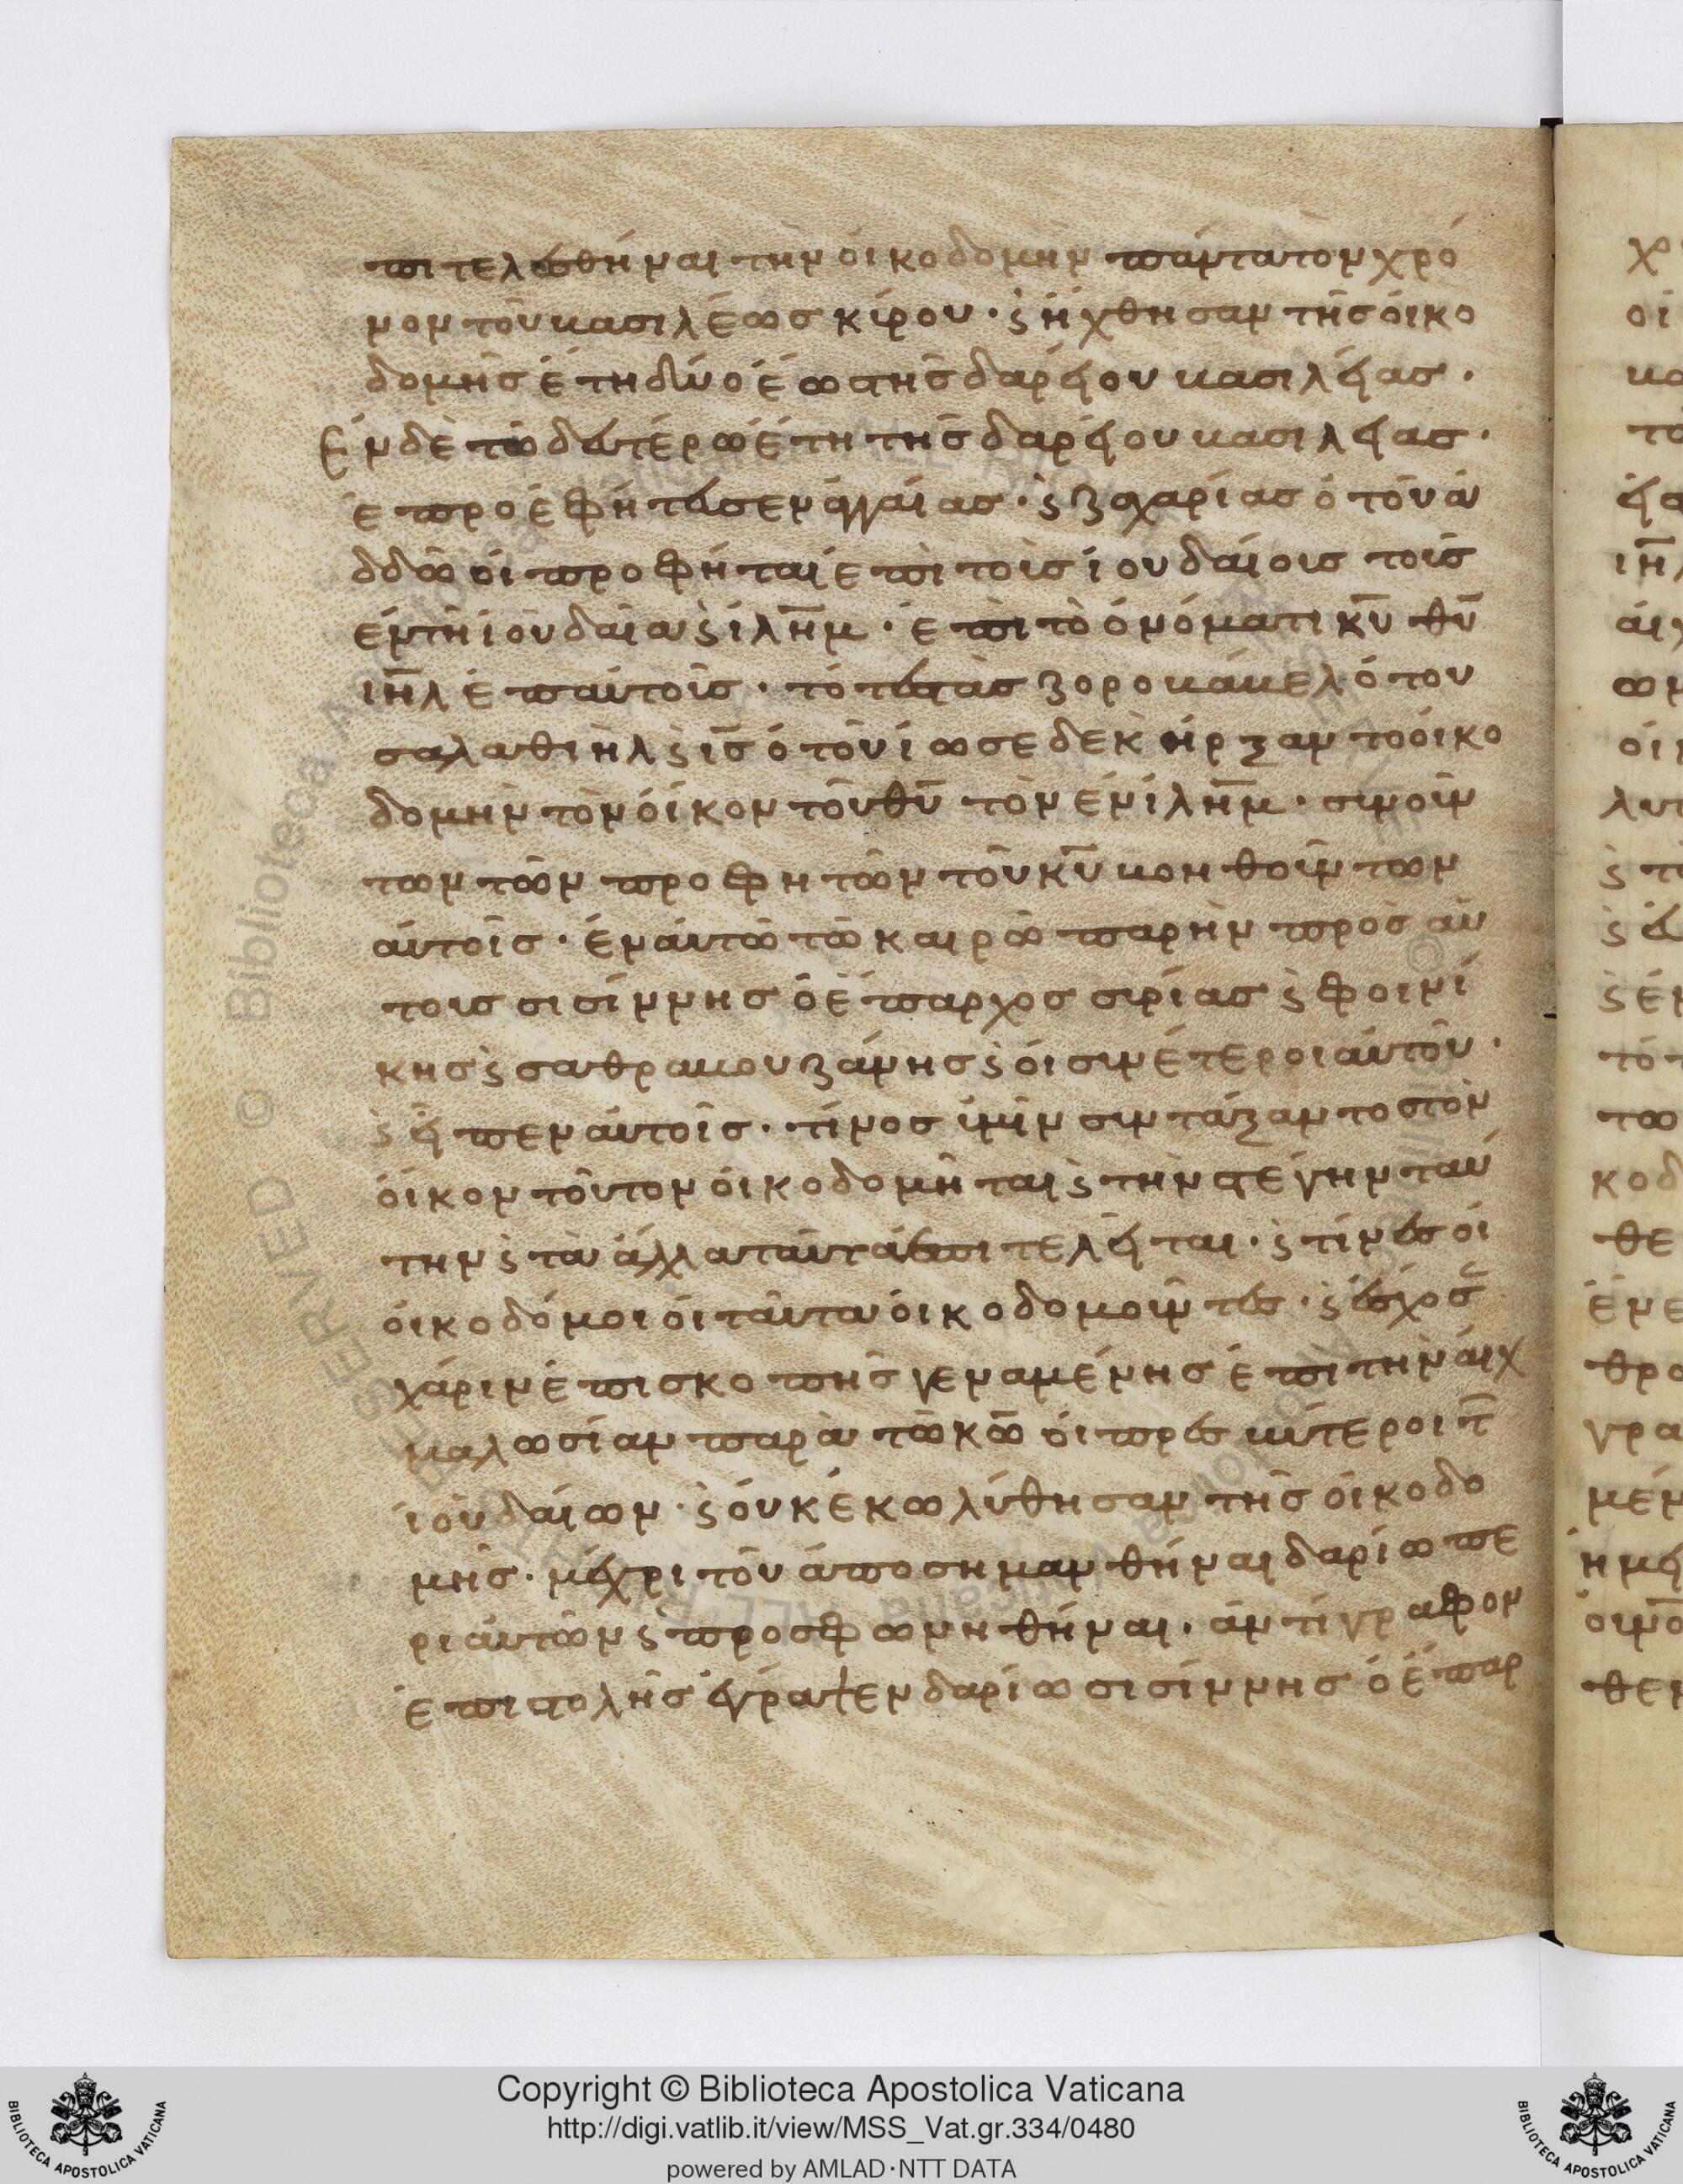 πιτελεσθήναι τὴν οἰκοδομὴν πάντα τον χρό
νον τοῦ βασιλέωσ κύρου · ϗ ἤχθησαν τῆσ οἰκο
δομῆσ ἔτη δύο ἕωσ τῆσ δαρείου βασιλείασ ·
Ἐν δὲ τῶ δευτέρω ἔτη τῆσ δαρείου βασιλείασ ·
ἐπροέφήτευσεν ἀγγαίασ · ϗ ζαχαρίασ ὁ τοῦ ἀ
δδῶ οἱ προφήται ἐπὶ τοὶσ ἰουδαίοισ τοῖσ
ἐν τῆ ἰουδαία ϗ ἱλῆμ · ἐπι τὸ ὀνόματι κ̅υ̅ θ̅υ̅
ι̅η̅λ ἐπ αυτοῖσ · τότε στὰσ ζοροβάβελ ὁ του
σαλαθιὴλ ϗ ι̅σ̅ ὁ τοῦ ἰωσεδὲκ ἤρξαν το οἰκο
δομὴν τὸν οἶκον τοῦ θ̅υ̅ τὸν ἐν ἱλῆμ · συνούν
των τῶν προφητῶν τοῦ κ̅υ̅ βοηθούντων
αὐτοῖσ · ἐν αὐτῶ τῶ καιρῶ παρὴν πρὸσ αὐ
τουσ σισίννησ ὁ ἔπαρχοσ συρίασ ϗ φοινί
κησ ϗ σαθραβουζάνησ ϗ οἱ συνέτεροι αὐτοῦ ·
ϗ εἶπεν αὐτοῖσ · τίνοσ ὑμὶν συντάξαντοσ τὸν
οἶκον τοῦτον οἰκοδομῆται ϗ τὴν στέγην ταύ
την ϗ τὰ ἄλλα ταῦτα ἐπιτελεῖται · ϗ τίνεσ οἱ
οἰκοδόμοι οἱ ταῦτα οἰκοδομοῦντεσ · ϗ ἔσχοσ̅
χάριν ἐπισκοπῆσ γεναμένησ ἐπι τὴν αἰχ
μαλωσίαν παρὰ τῶ κ̅ω̅ οἱ πρεσβύτεροι τ̅
ἰουδαίων · ϗ οὐκ ἐκωλύθησαν τῆσ οἰκοδο
μῆσ · μέχρι τοῦ ἀποσημανθήναι δαρίω πε
ρι αὐτῶν ϗ προσφωνηθήναι · ἀντίγραφον
ἐπιστολῆσ ἔγραψεν δαρίω σισίννησ ὁ ἔπαρ
Copyright © Biblioteca Apostolica Vaticana
http://digi.vatlib.it/view/MSS_Vat.gr.334/0480
powered by AMLAD·NTT DATA
BIBLIOTECA APOSTOLICA VATICANA
BIBLIOTECA APOSTOLICA VATICANA